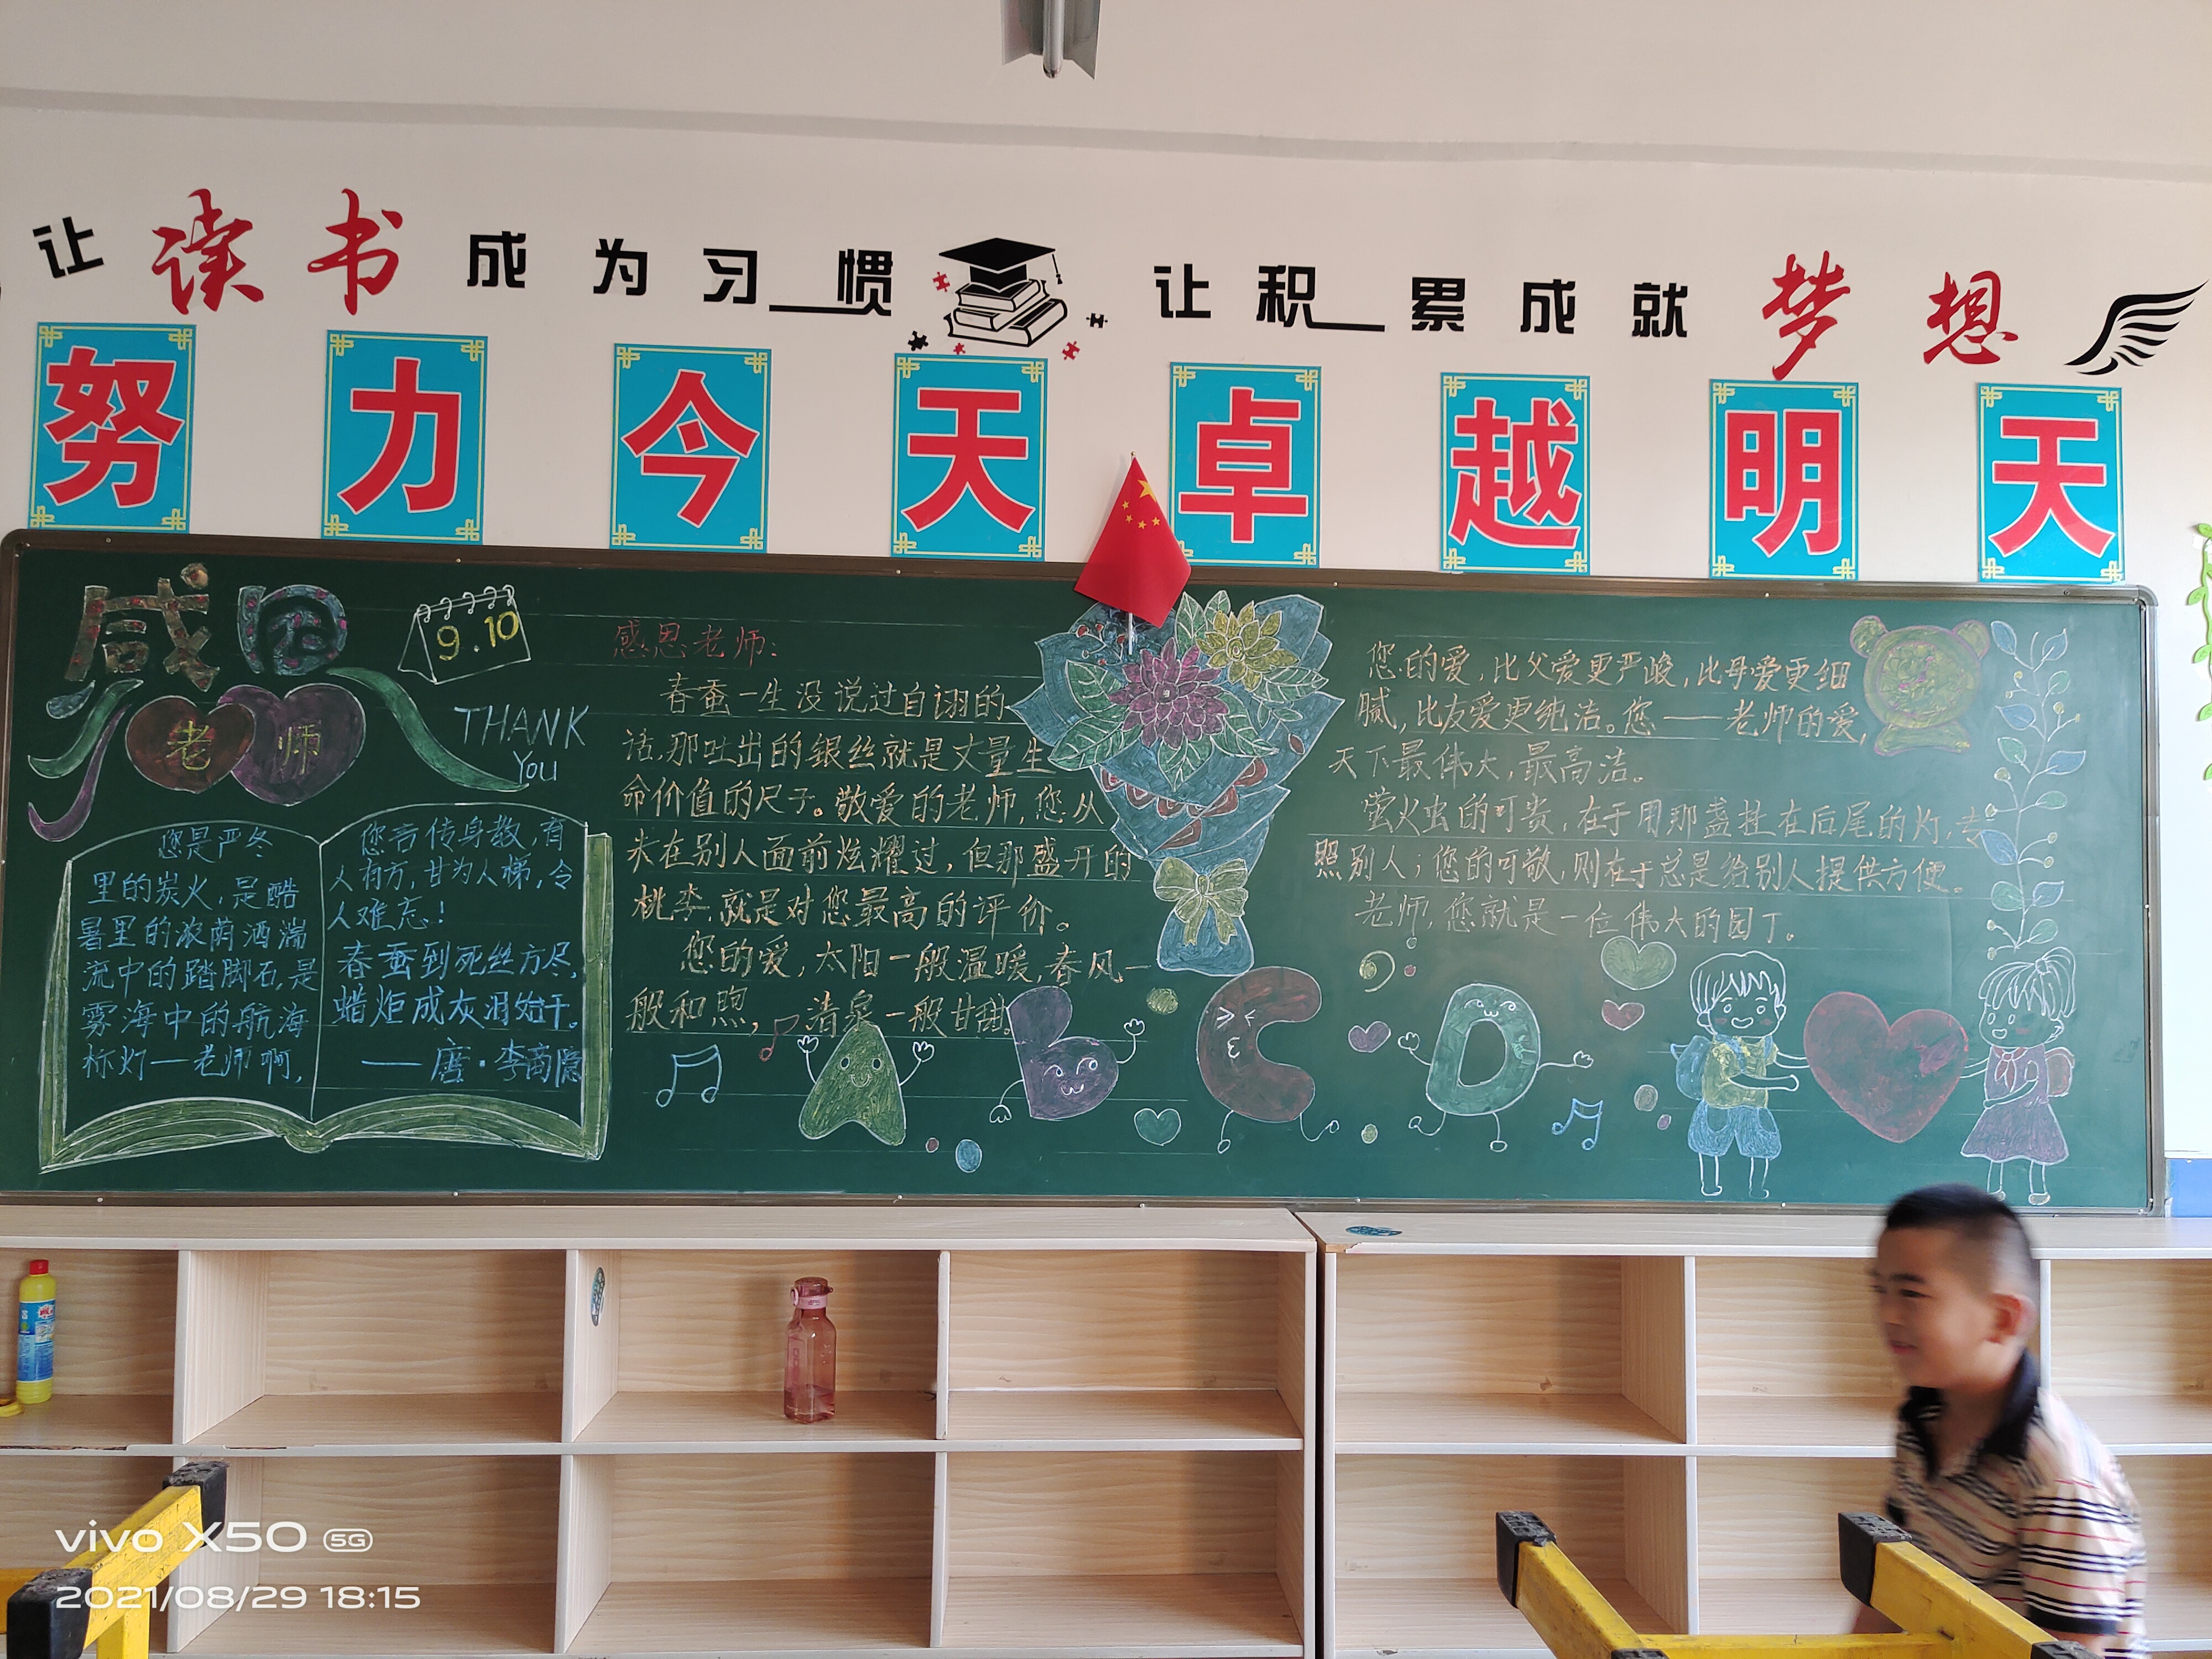 让读书成为习惯 让积累成就梦想
努力今天卓越明天
感恩
老师
9.10
THANK
You
您是严冬
里的炭火，是酷
暑里的浓荫洒湍
流中的踏脚石，是
雾海中的航海
标灯一老师啊，
您言传身教，育
人有方，甘为人梯，令
人难忘！
春蚕到死丝方尽，
蜡炬成灰泪始干。
——唐·李商隐
感恩老师：
春蚕一生没说过自诩的
话，那吐出的银丝就是丈量生
命价值的尺子。敬爱的老师，您从
未在别人面前炫耀过，但那盛开的
桃李，就是对您最高的评价。
您的爱，太阳一般温暖，春风一
般和煦，清泉一般甘甜。
A b C D
您的爱，比父爱更严峻，比母爱更细
腻，比友爱更纯洁。您——老师的爱，
天下最伟大，最高洁。
萤火虫的可贵，在于用那盏挂在后尾的灯，专
照别人；您的可敬，则在于总是给别人提供方便。
老师，您就是一位伟大的园丁。
vivo X50 5G
2021/08/29 18:15